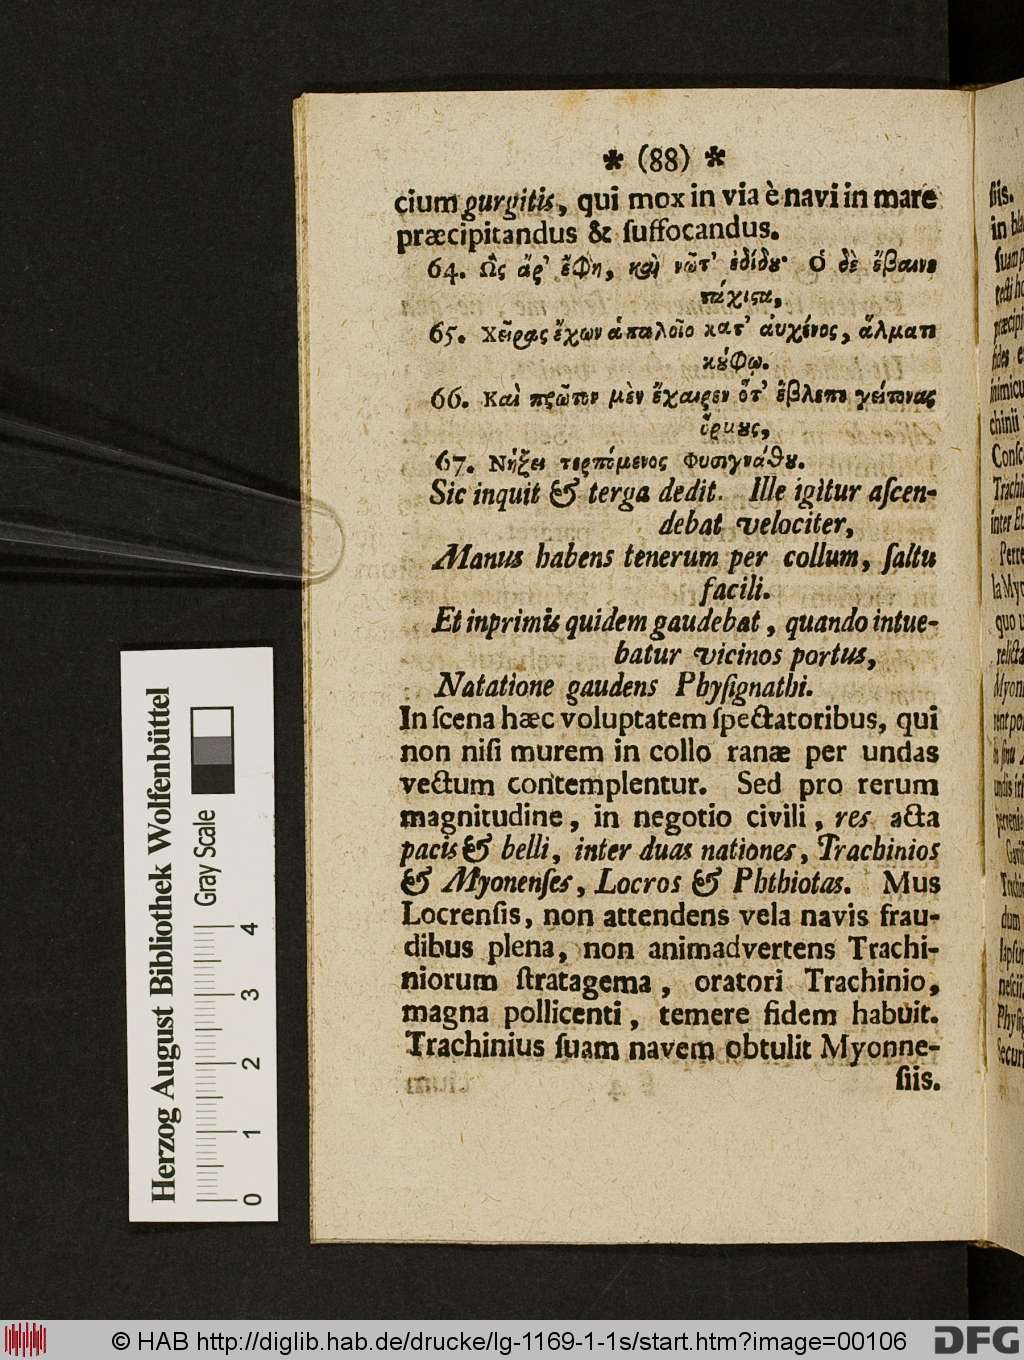 * (88) *
cium gurgitis, qui mox in via è navi in mare
præcipitandus & ſuffocandus.
64. Ὣς ἄρ’ ἔφη, καὶ νῶτ’ ἐδίδου· Ὁ δὲ ἔβαινε
τάχιστα,
65. Χεῖρας ἔχων ἁπαλοῖο κατ’ αὐχένος, ἅλματι
κούφῳ.
66. Καὶ πρῶτον μὲν ἔχαιρεν ὅτ’ ἔβλεπε γείτονας
ὅρμους,
67. Νήξει τερπόμενος Φυσιγνάθου.
Sic inquit & terga dedit. Ille igitur aſcen-
debat velociter,
Manus habens tenerum per collum, ſaltu
facili.
Et inprimis quidem gaudebat, quando intue-
batur vicinos portus,
Natatione gaudens Phyſignathi.
In ſcena hæc voluptatem ſpectatoribus, qui
non niſi murem in collo ranæ per undas
vectum contemplentur. Sed pro rerum
magnitudine, in negotio civili, res acta
pacis & belli, inter duas nationes, Trachinios
& Myonenſes, Locros & Phthiotas. Mus
Locrenſis, non attendens vela navis frau-
dibus plena, non animadvertens Trachi-
niorum ſtratagema, oratori Trachinio,
magna pollicenti, temere fidem habuit.
Trachinius ſuam navem obtulit Myonne-
ſiis.
Herzog August Bibliothek Wolfenbüttel
Gray Scale
0 1 2 3 4
© HAB http://diglib.hab.de/drucke/lg-1169-1-1s/start.htm?image=00106
DFG